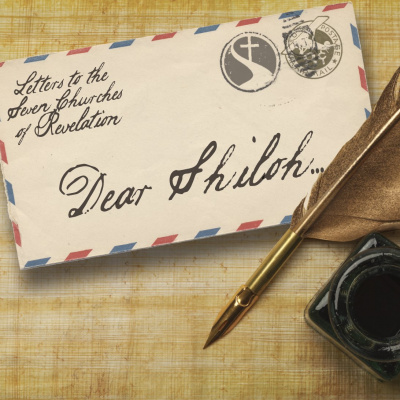 Letters to the
Seven Churches
of Revelation
Dear Shiloh...
POSTAGE